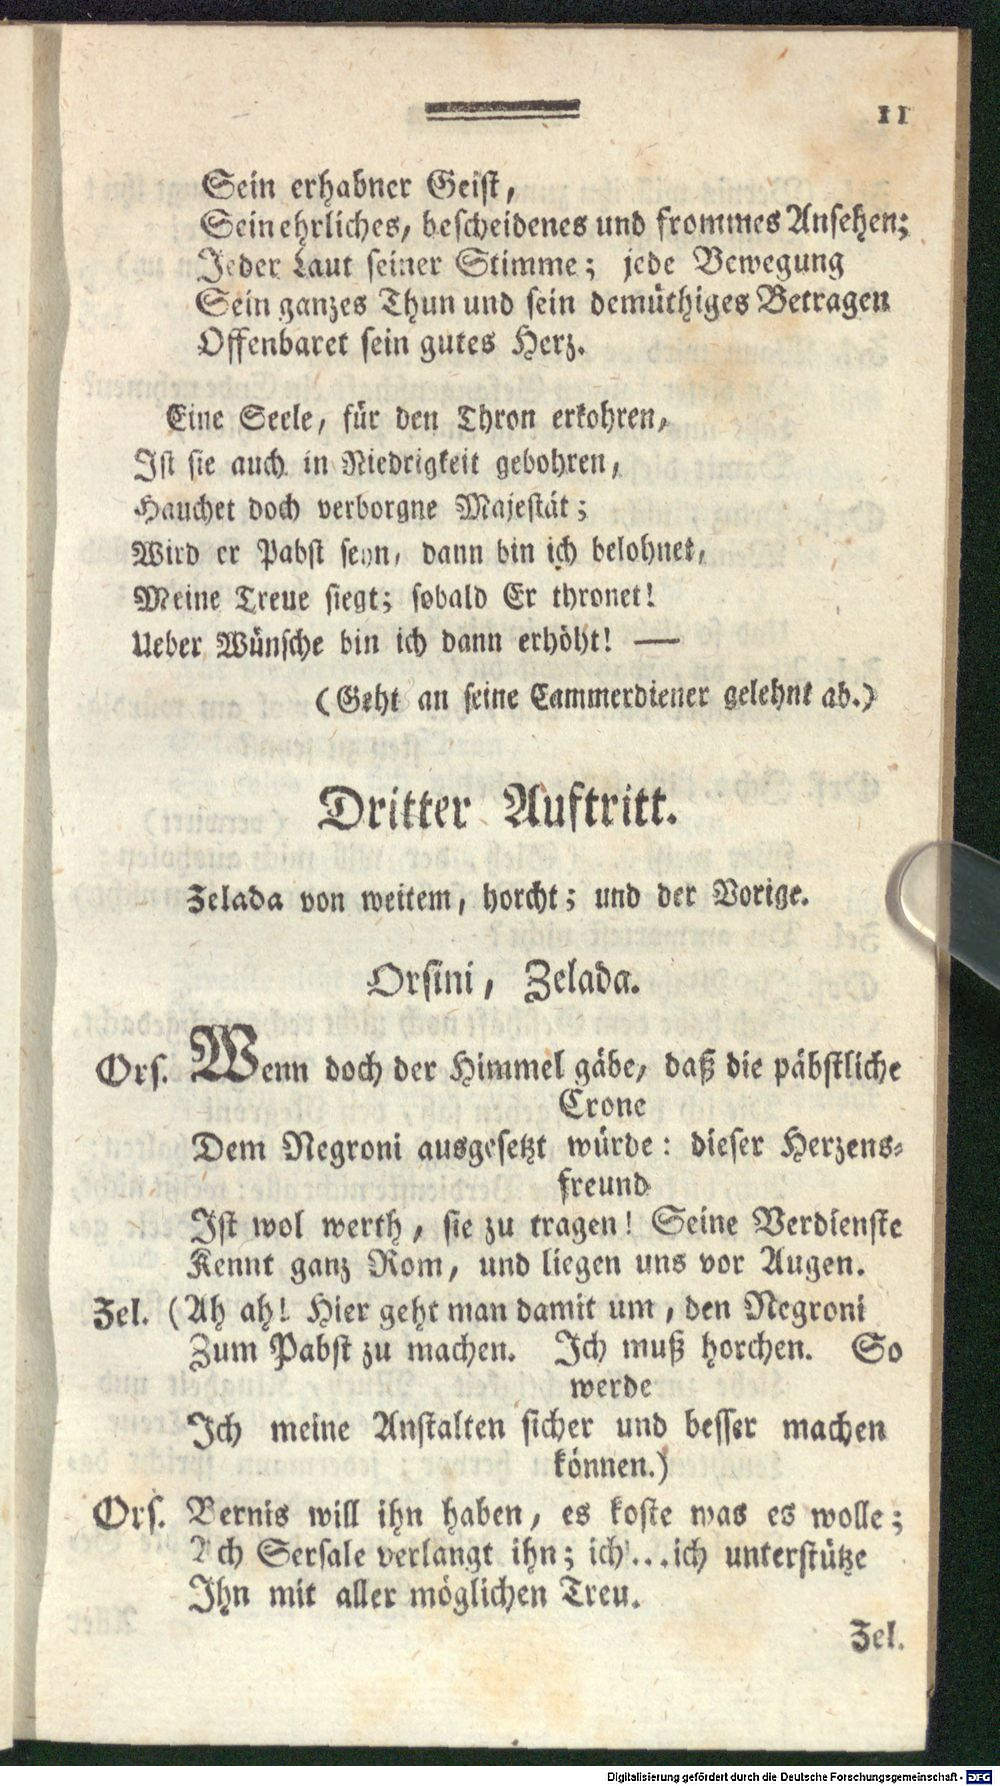 11
Sein erhabner Geist,
Sein ehrliches, bescheidenes und frommes Ansehen;
Jeder Laut seiner Stimme; jede Bewegung
Sein ganzes Thun und sein demüthiges Betragen
Offenbaret sein gutes Herz.
Eine Seele, für den Thron erkohren,
Ist sie auch in Niedrigkeit gebohren,
Hauchet doch verborgne Majestät;
Wird er Pabst seyn, dann bin ich belohnet,
Meine Treue siegt; sobald Er thronet!
Ueber Wünsche bin ich dann erhöht! —
(Geht an seine Cammerdiener gelehnt ab.)
Dritter Auftritt.
Zelada von weitem, horcht; und der Vorige.
Orsini, Zelada.
Ors. Wenn doch der Himmel gäbe, daß die päbstliche
Crone
Dem Negroni ausgesetzt würde: dieser Herzens-
freund
Ist wol werth, sie zu tragen! Seine Verdienste
Kennt ganz Rom, und liegen uns vor Augen.
Zel. (Ah ah! Hier geht man damit um, den Negroni
Zum Pabst zu machen. Ich muß horchen. So
werde
Ich meine Anstalten sicher und besser machen
können.)
Ors. Bernis will ihn haben, es koste was es wolle;
Sersale verlangt ihn; ich...ich unterstütze
Ihn mit aller möglichen Treu.
Zel.
Digitalisierung gefördert durch die Deutsche Forschungsgemeinschaft - DFG